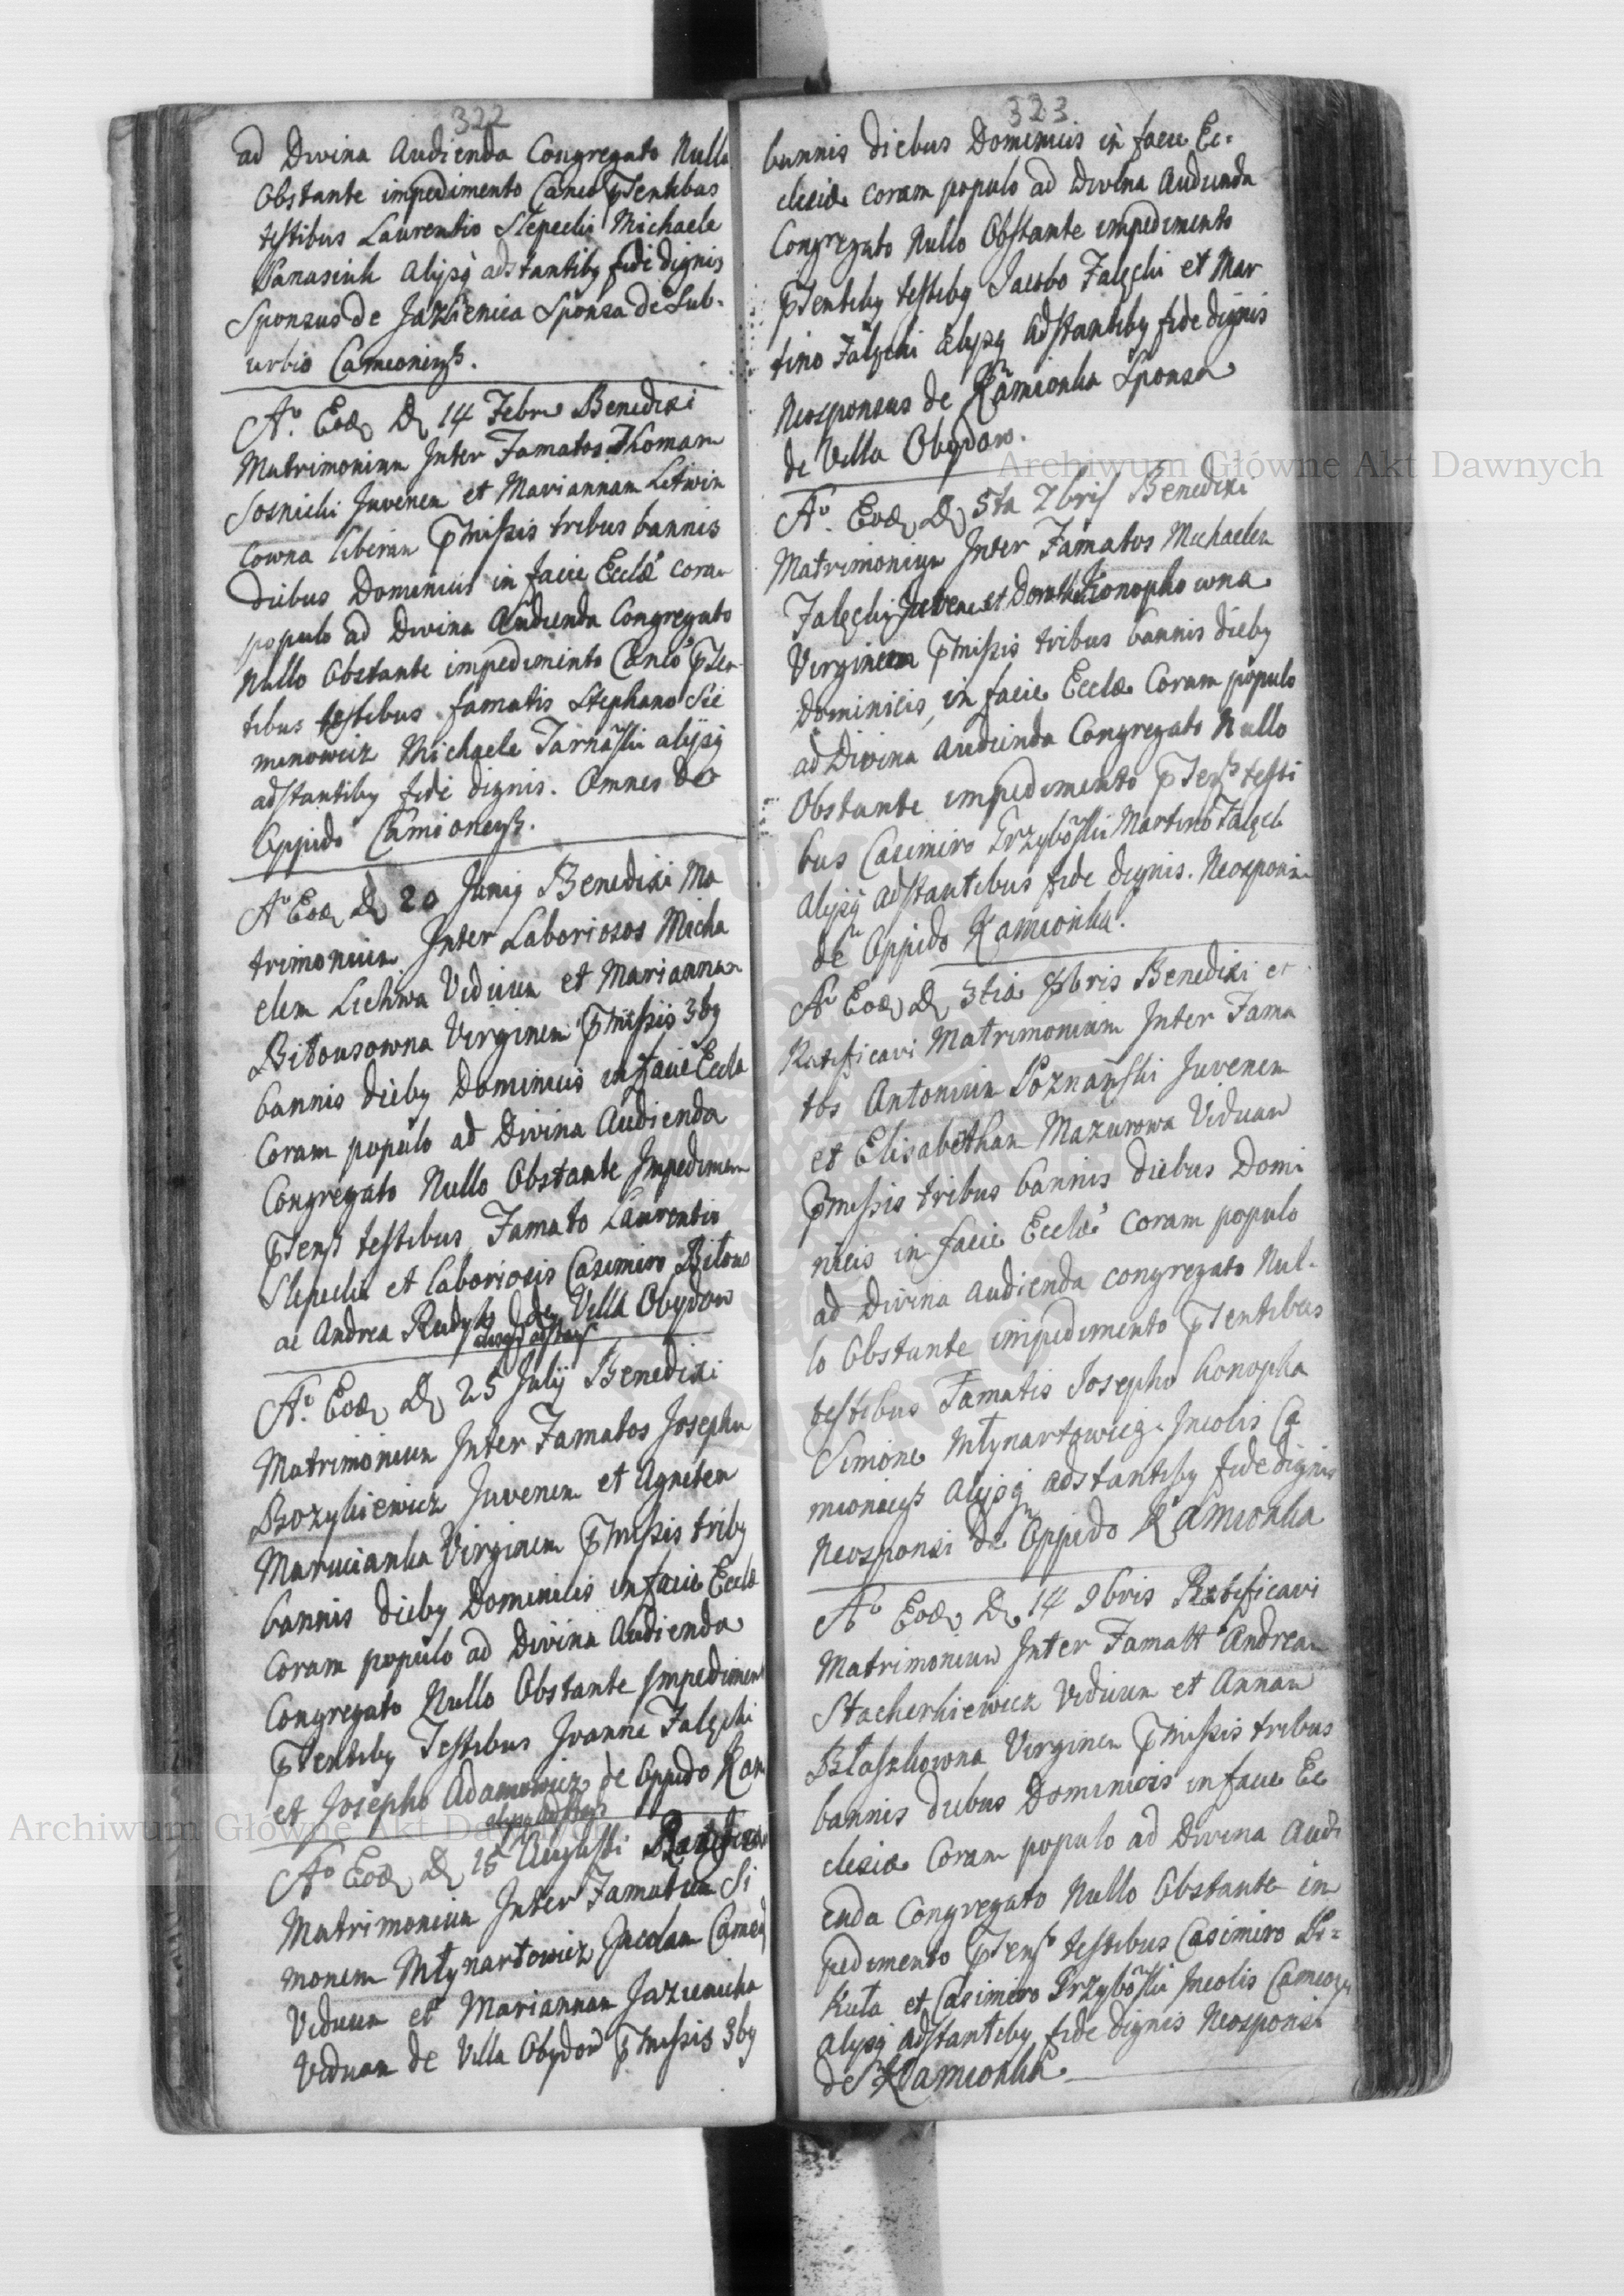 322
ad Divina Audienda Congregato Nullo
Obstante impedimento Canco pſentibus
testibus Laurentio Slepecki Michaele
Panasiuk alijsq adstantibq fide dignis
Sponsus de Jazienica Sponsa de Sub-
urbio Camionensi.
Aº. Eod D 14 Febru Benedixi
Matrimonium Inter Famatos Thomam
Sosnicki Juvenem et Mariannam Litwin
cowna liberam pmissis tribus bannis
diebus Dominicis in facie Ecclæ coram
populo ad Divina Audienda Congregato
Nullo Obstante impedimento Canco pſen-
tibus testibus famatis Stephano Sie
menowicz Michaele Tarnaſki alijsq
adstantibq fide dignis. Omnes de
Oppido Camionensi.
Aº Eod D 20 Junij Benedixi Ma
trimonium Inter Laboriosos Micha
elem Lichwa Viduum et Mariannam
Bitousowna Virginem pmissis 3bq
bannis diebq Dominicis in facie Eccla
Coram populo ad Divina Audienda
Congregato Nullo Obstante Impedimen
pſens testibus Famato Laurentio
Slepecki et Laboriosis Casimiro Bitous
ac Andrea Rudyk de Villa Obydow
alijsq adstan
Aº. Eod D 25 Julij Benedixi
Matrimonium Inter Famatos Josephu
Bozykiewicz Juvenem et Agnetem
Marucianka Virginem pmissis tribq
bannis diebq Dominicis in facie Eccla
Coram populo ad Divina Audienda
Congregato Nullo Obstante Impedimen
pſentibq Testibus Joanne Falęcki
et Josepho Adamowicz de Oppido Kam
alijsq adstan
Aº Eod D 15 Augusti Ratifica
Matrimonium Inter Famatum Si
monem Młynartowicz Incolam Camen
Viduum et Mariannam Jazienicka
Viduam de Villa Obydow pmissis 3bq
323
bannis diebus Dominicis in facie Ec-
clesiæ coram populo ad Divina Audienda
Congregato Nullo Obstante impedimento
pſentibq testibq Jacobo Falęcki et Mar
tino Falęcki alijsq adstantibq fide dignis
Neosponsus de Kamionka Sponsa
de Villa Obydow.
Aº. Eod D 5ta 7bris Benedixi
Matrimonium Inter Famatos Michaelem
Falęcki Juvene et Doroth Konopkowna
Virginem pmissis tribus bannis diebq
Dominicis in facie Ecclæ Coram populo
ad Divina Audienda Congregato Nullo
Obstante impedimento pſens testi
bus Casimiro Przyboſki Martino Falęck
alijsq adstantibus fide dignis. Neosponsi
de Oppido Kamionka.
Aº Eod D 3tia 8bris Benedixi et
Ratificavi Matrimonium Inter Fama
tos Antonium Poznańſki Juvenem
et Elisabetham Mazurowa Viduam
pmissis tribus bannis diebus Domi
nicis in facie Ecclæ coram populo
ad Divina audienda congregato Nul-
lo Obstante impedimento pſentibus
testibus Famatis Josepho Konopka
Simone Młynartowicz Incolis Ca
mionens alijsq adstantibq fide dignis
Neosponsi de Oppido Kamionka
Aº Eod D 14 9bris Ratificavi
Matrimonium Inter Famatt Andream
Stacherkiewicz Viduum et Annam
Błaszkowna Virginem pmissis tribus
bannis diebus Dominicis in facie Ec
clesiæ Coram populo ad Divina Audi
enda Congregato Nullo Obstante im
pedimento pſens testibus Casimiro Pi=
kuła et Casimiro Przyboſki Incolis Camion
alijsq adstantibq fide dignis Neosponsi
de Kamionka
Archiwum Główne Akt Dawnych
Archiwum Główne Akt Dawnych